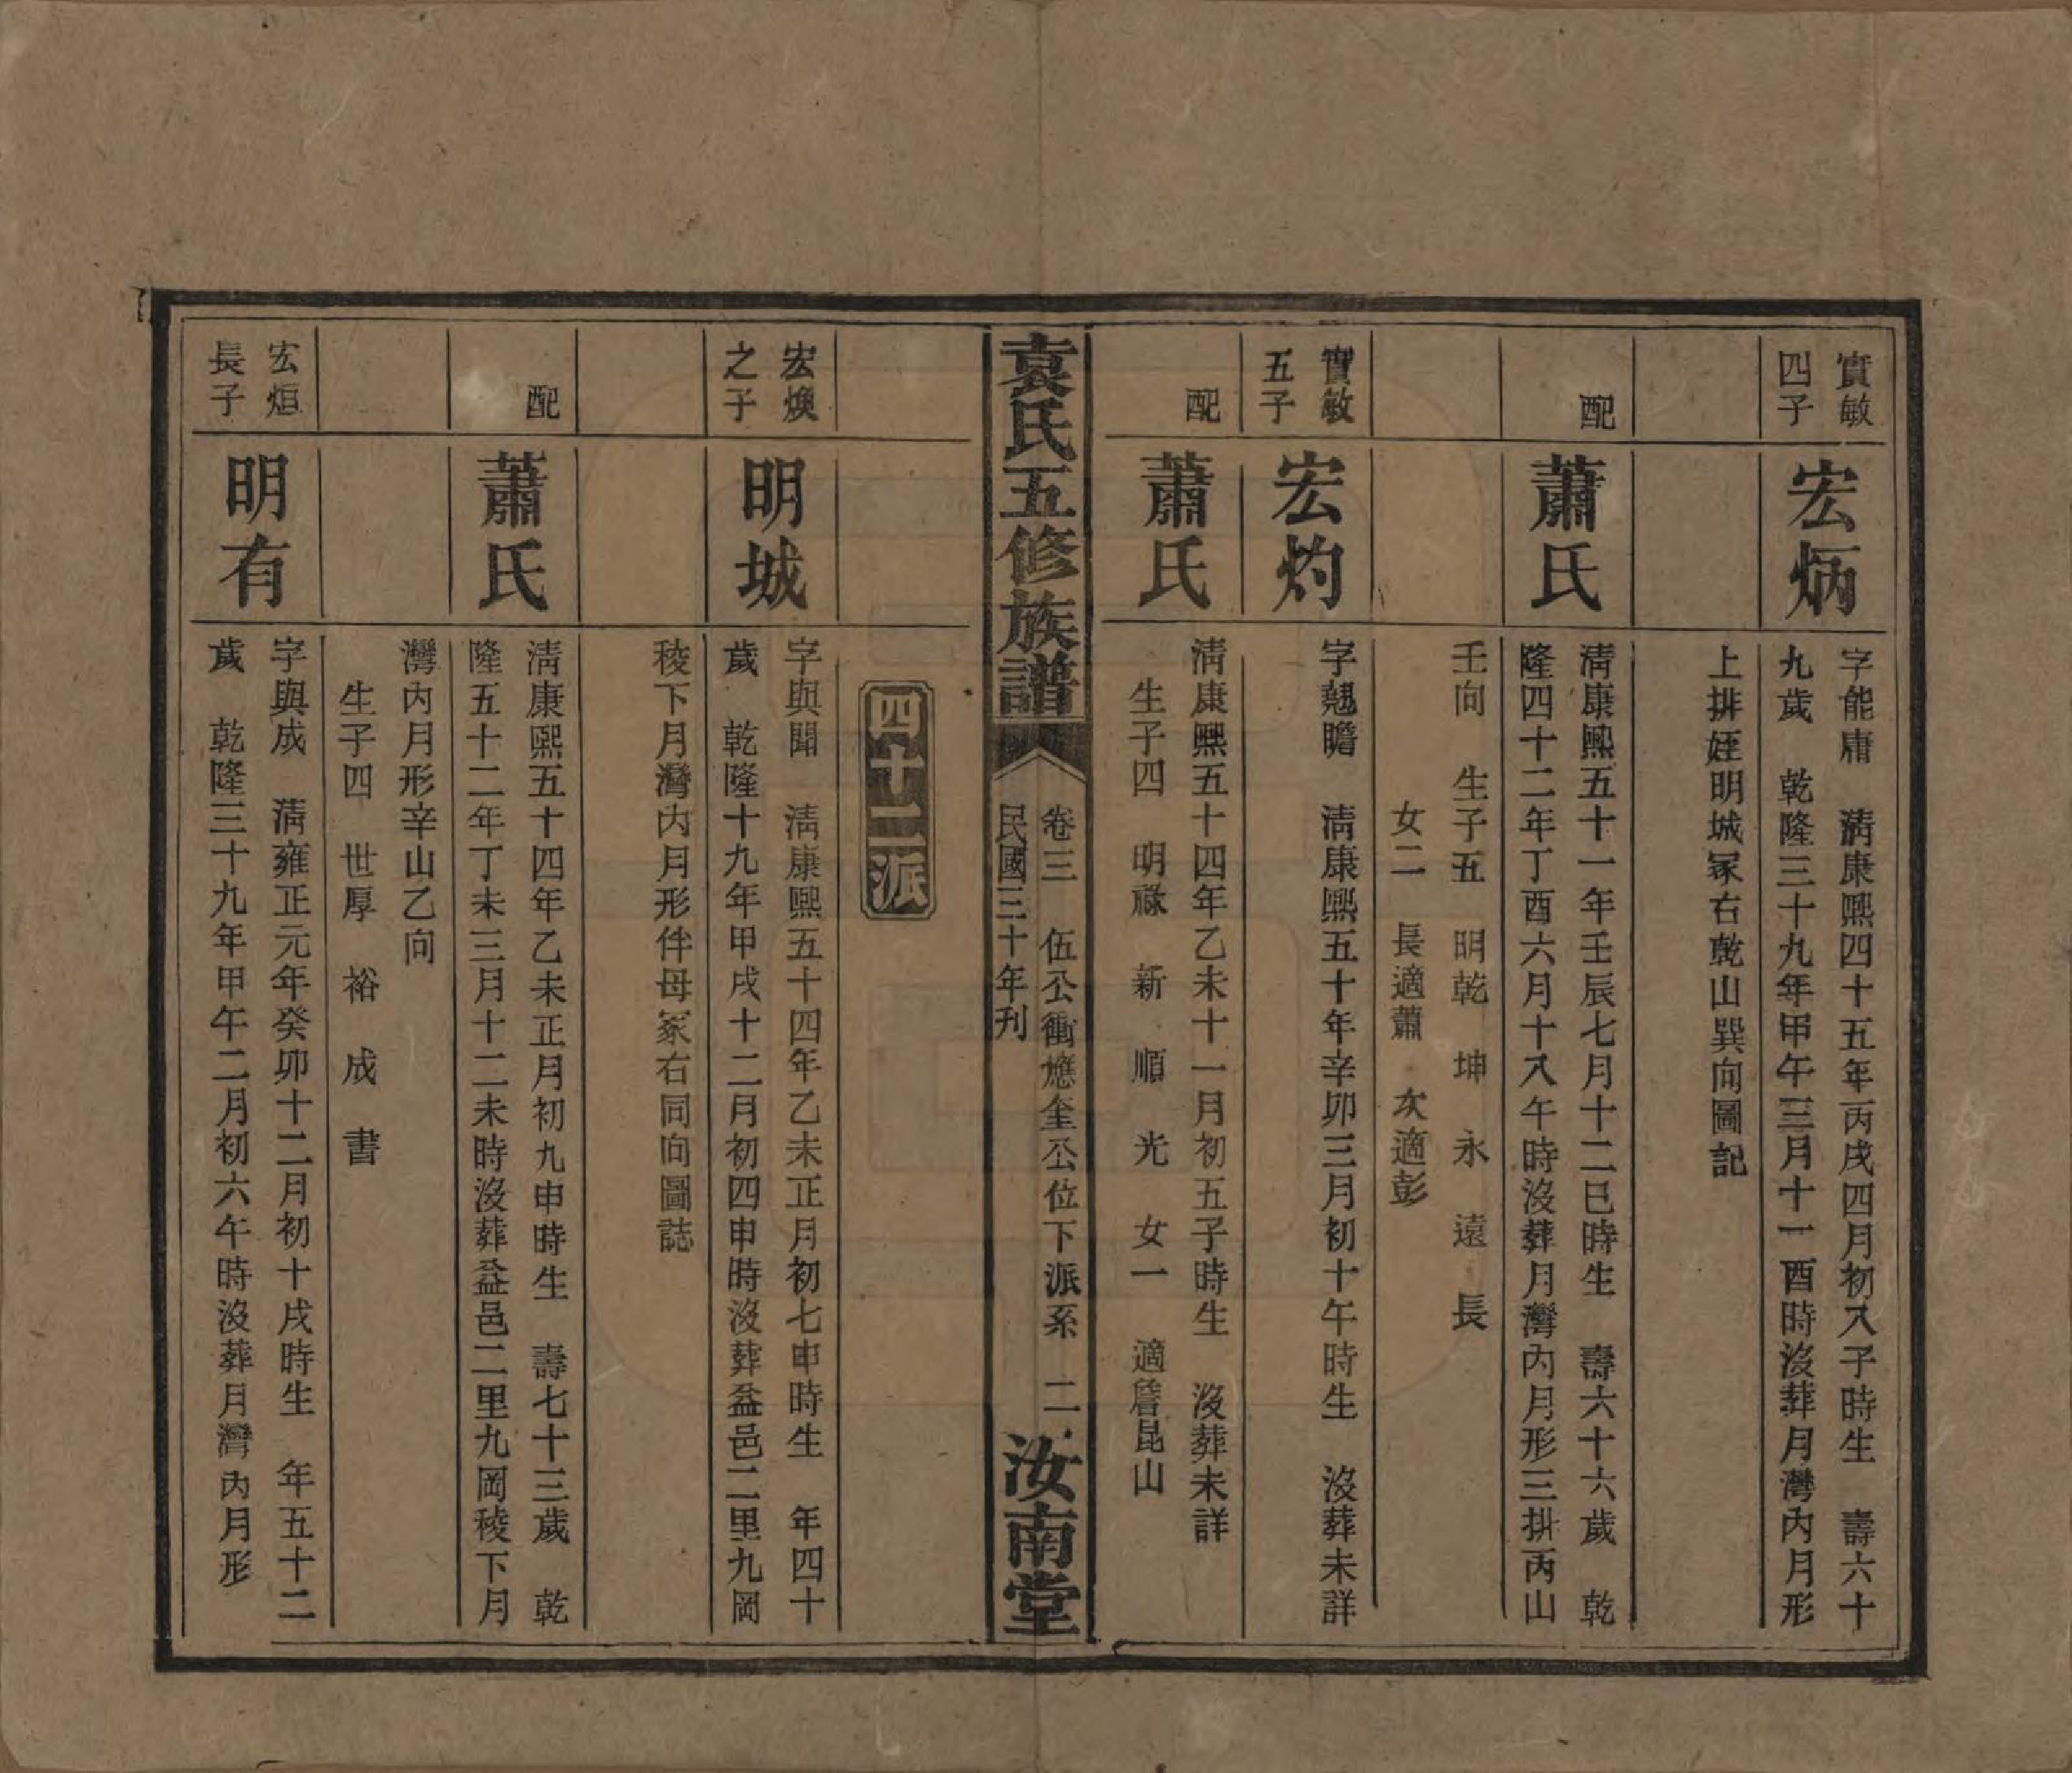 實敏
四子
宏炳
字能庸　清康熙四十五年丙戌四月初八子時生　壽六十
九歲　乾隆三十九年甲午三月十一酉時沒葬月灣內月形
上排姪明城冢右乾山巽向圖記
配
蕭氏
清康熙五十一年壬辰七月十二巳時生　壽六十六歲　乾
隆四十二年丁酉六月十八午時沒葬月灣內月形三排丙山
壬向　生子五　明乾　坤　永　遠　長
女二　長適蕭　次適彭
實敏
五子
宏灼
字翹瞻　清康熙五十年辛卯三月初十午時生　沒葬未詳
配
蕭氏
清康熙五十四年乙未十一月初五子時生　沒葬未詳
生子四　明祿　新　順　光　女一　適詹昆山
袁氏五修族譜
卷三　伍公衝應奎公位下派系　二
民國三十年刊
汝南堂
四十二派
宏煥
之子
明城
字與聞　清康熙五十四年乙未正月初七申時生　年四十
歲　乾隆十九年甲戌十二月初四申時沒葬益邑二里九岡
稜下月灣內月形伴母冢右同向圖誌
配
蕭氏
清康熙五十四年乙未正月初九申時生　壽七十三歲　乾
隆五十二年丁未三月十二未時沒葬益邑二里九岡稜下月
灣內月形辛山乙向
生子四　世厚　裕　成　書
宏烜
長子
明有
字與成　清雍正元年癸卯十二月初十戌時生　年五十二
歲　乾隆三十九年甲午二月初六午時沒葬月灣內月形